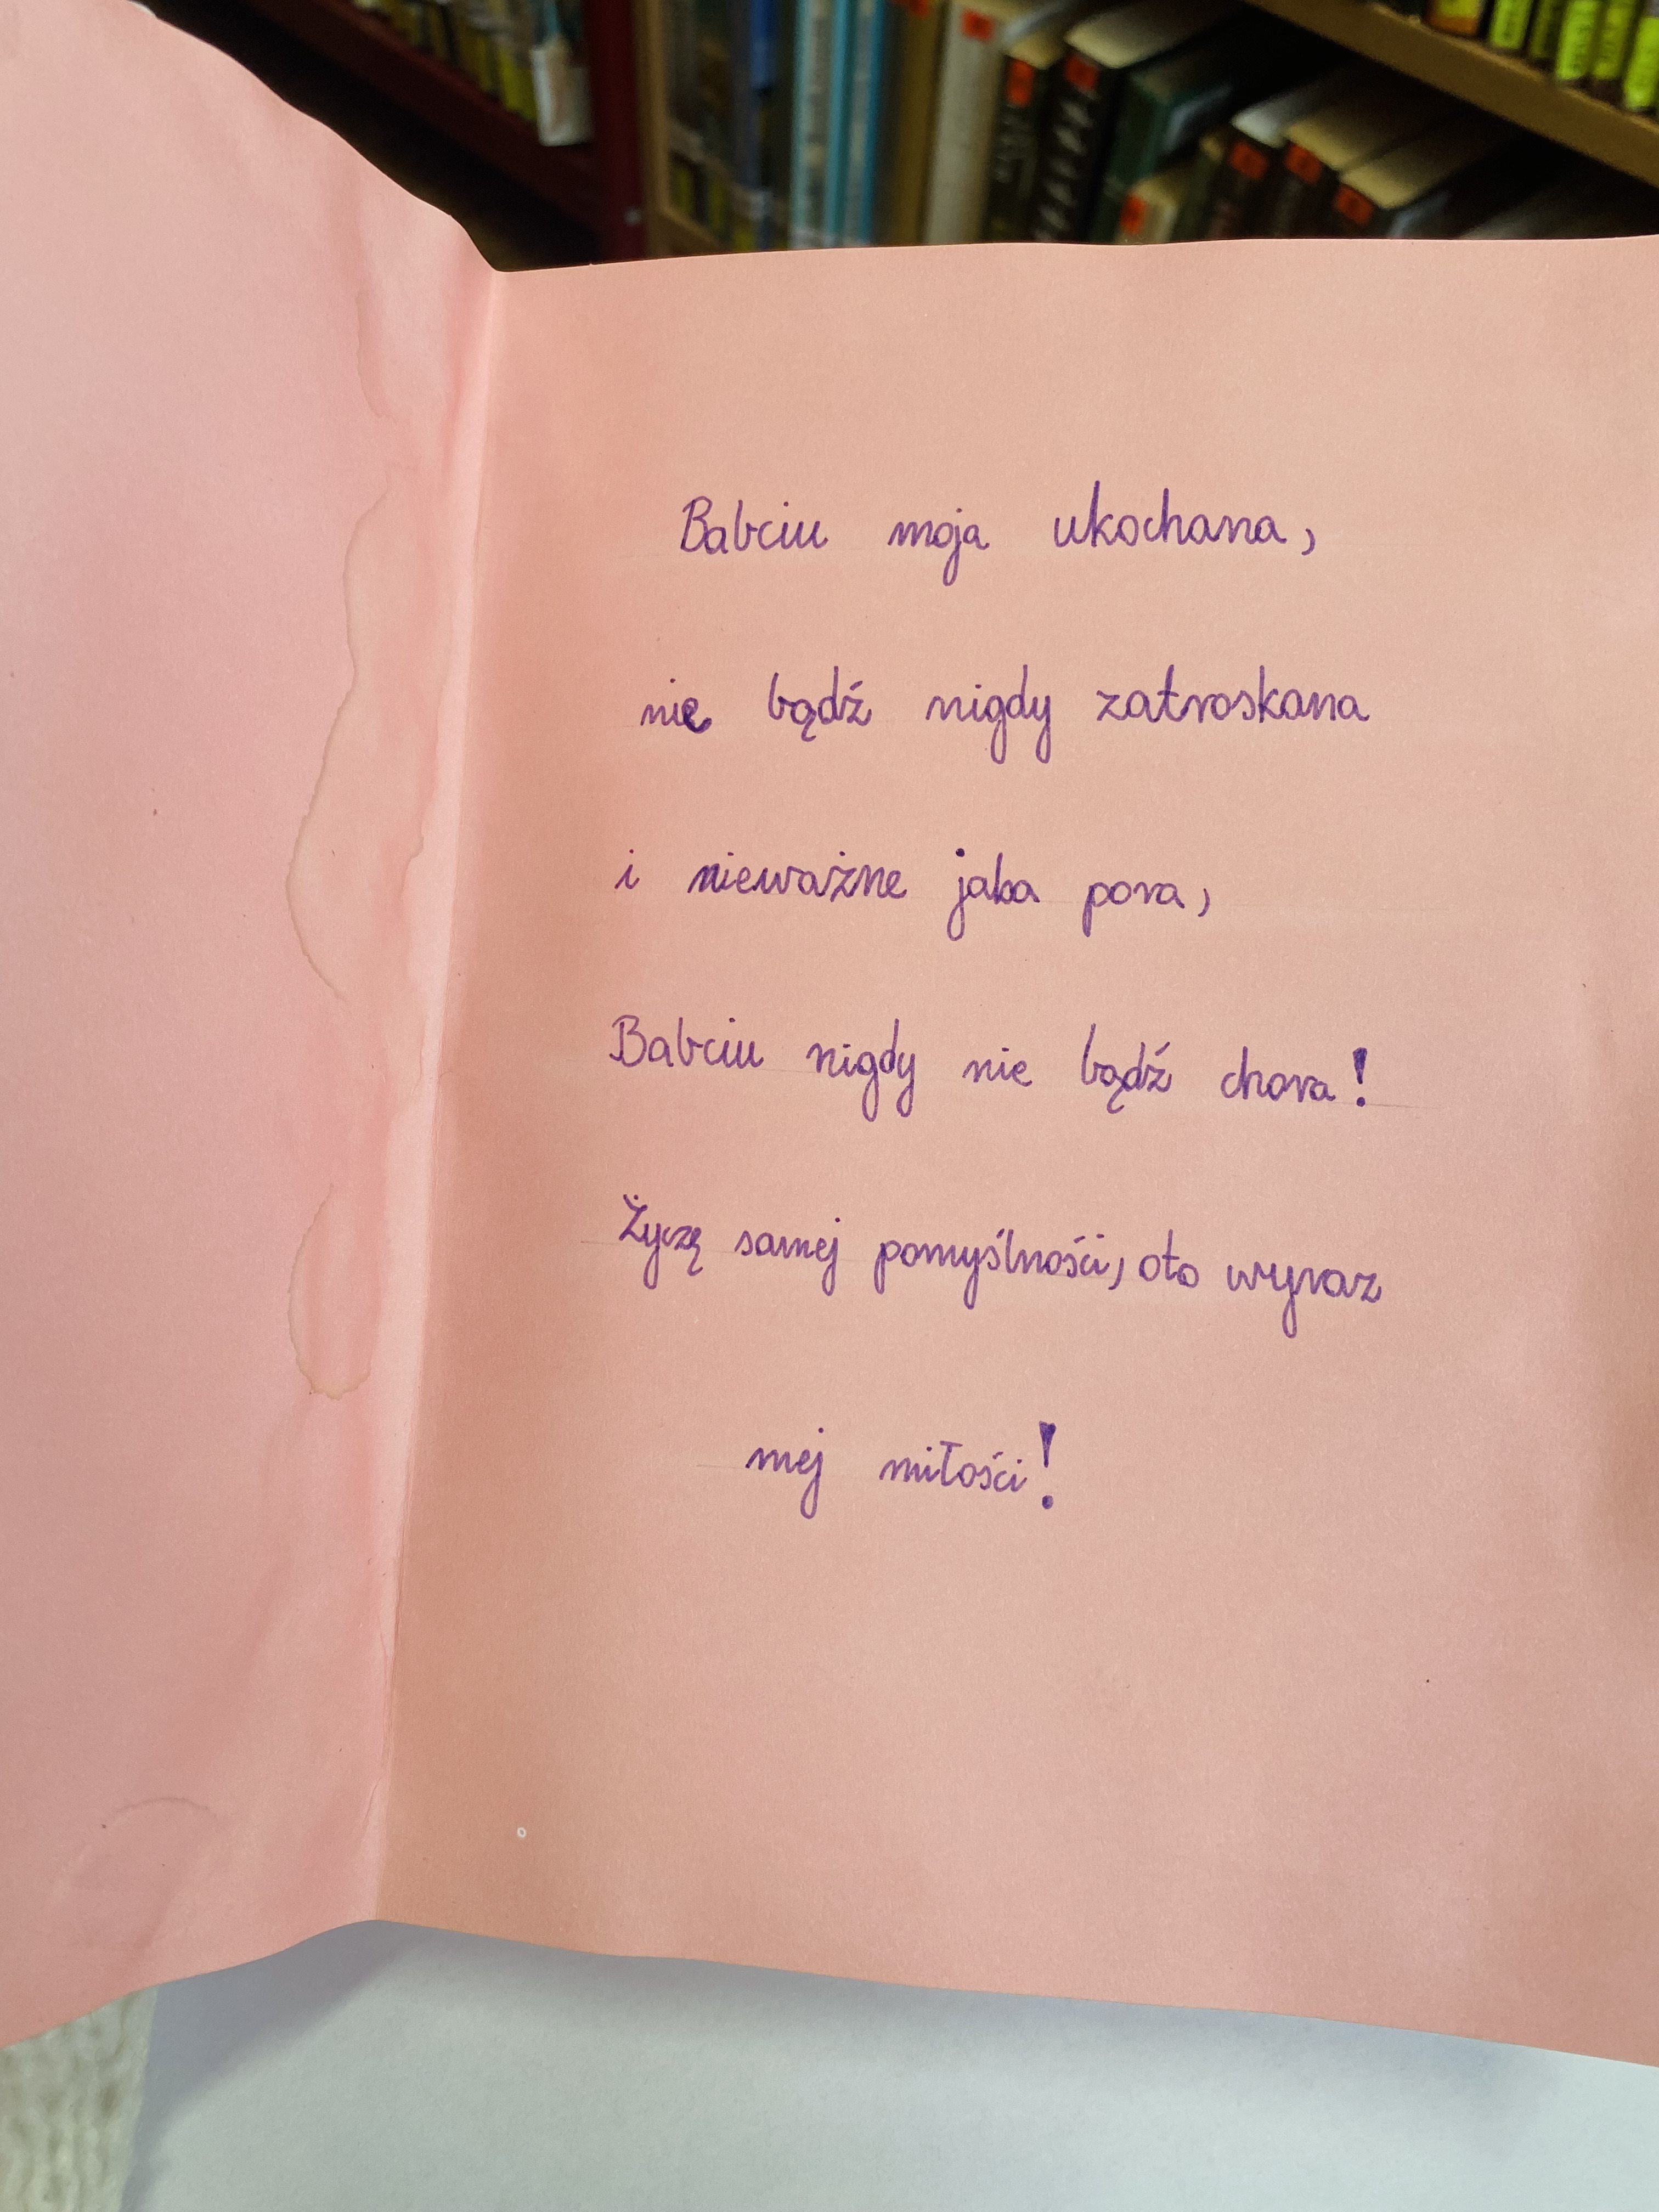 Babciu moja ukochana,
nie bądź nigdy zatroskana
i nieważne jaka pora,
Babciu nigdy nie bądź chora!
Życzę samej pomyślności, oto wyraz
mej miłości!